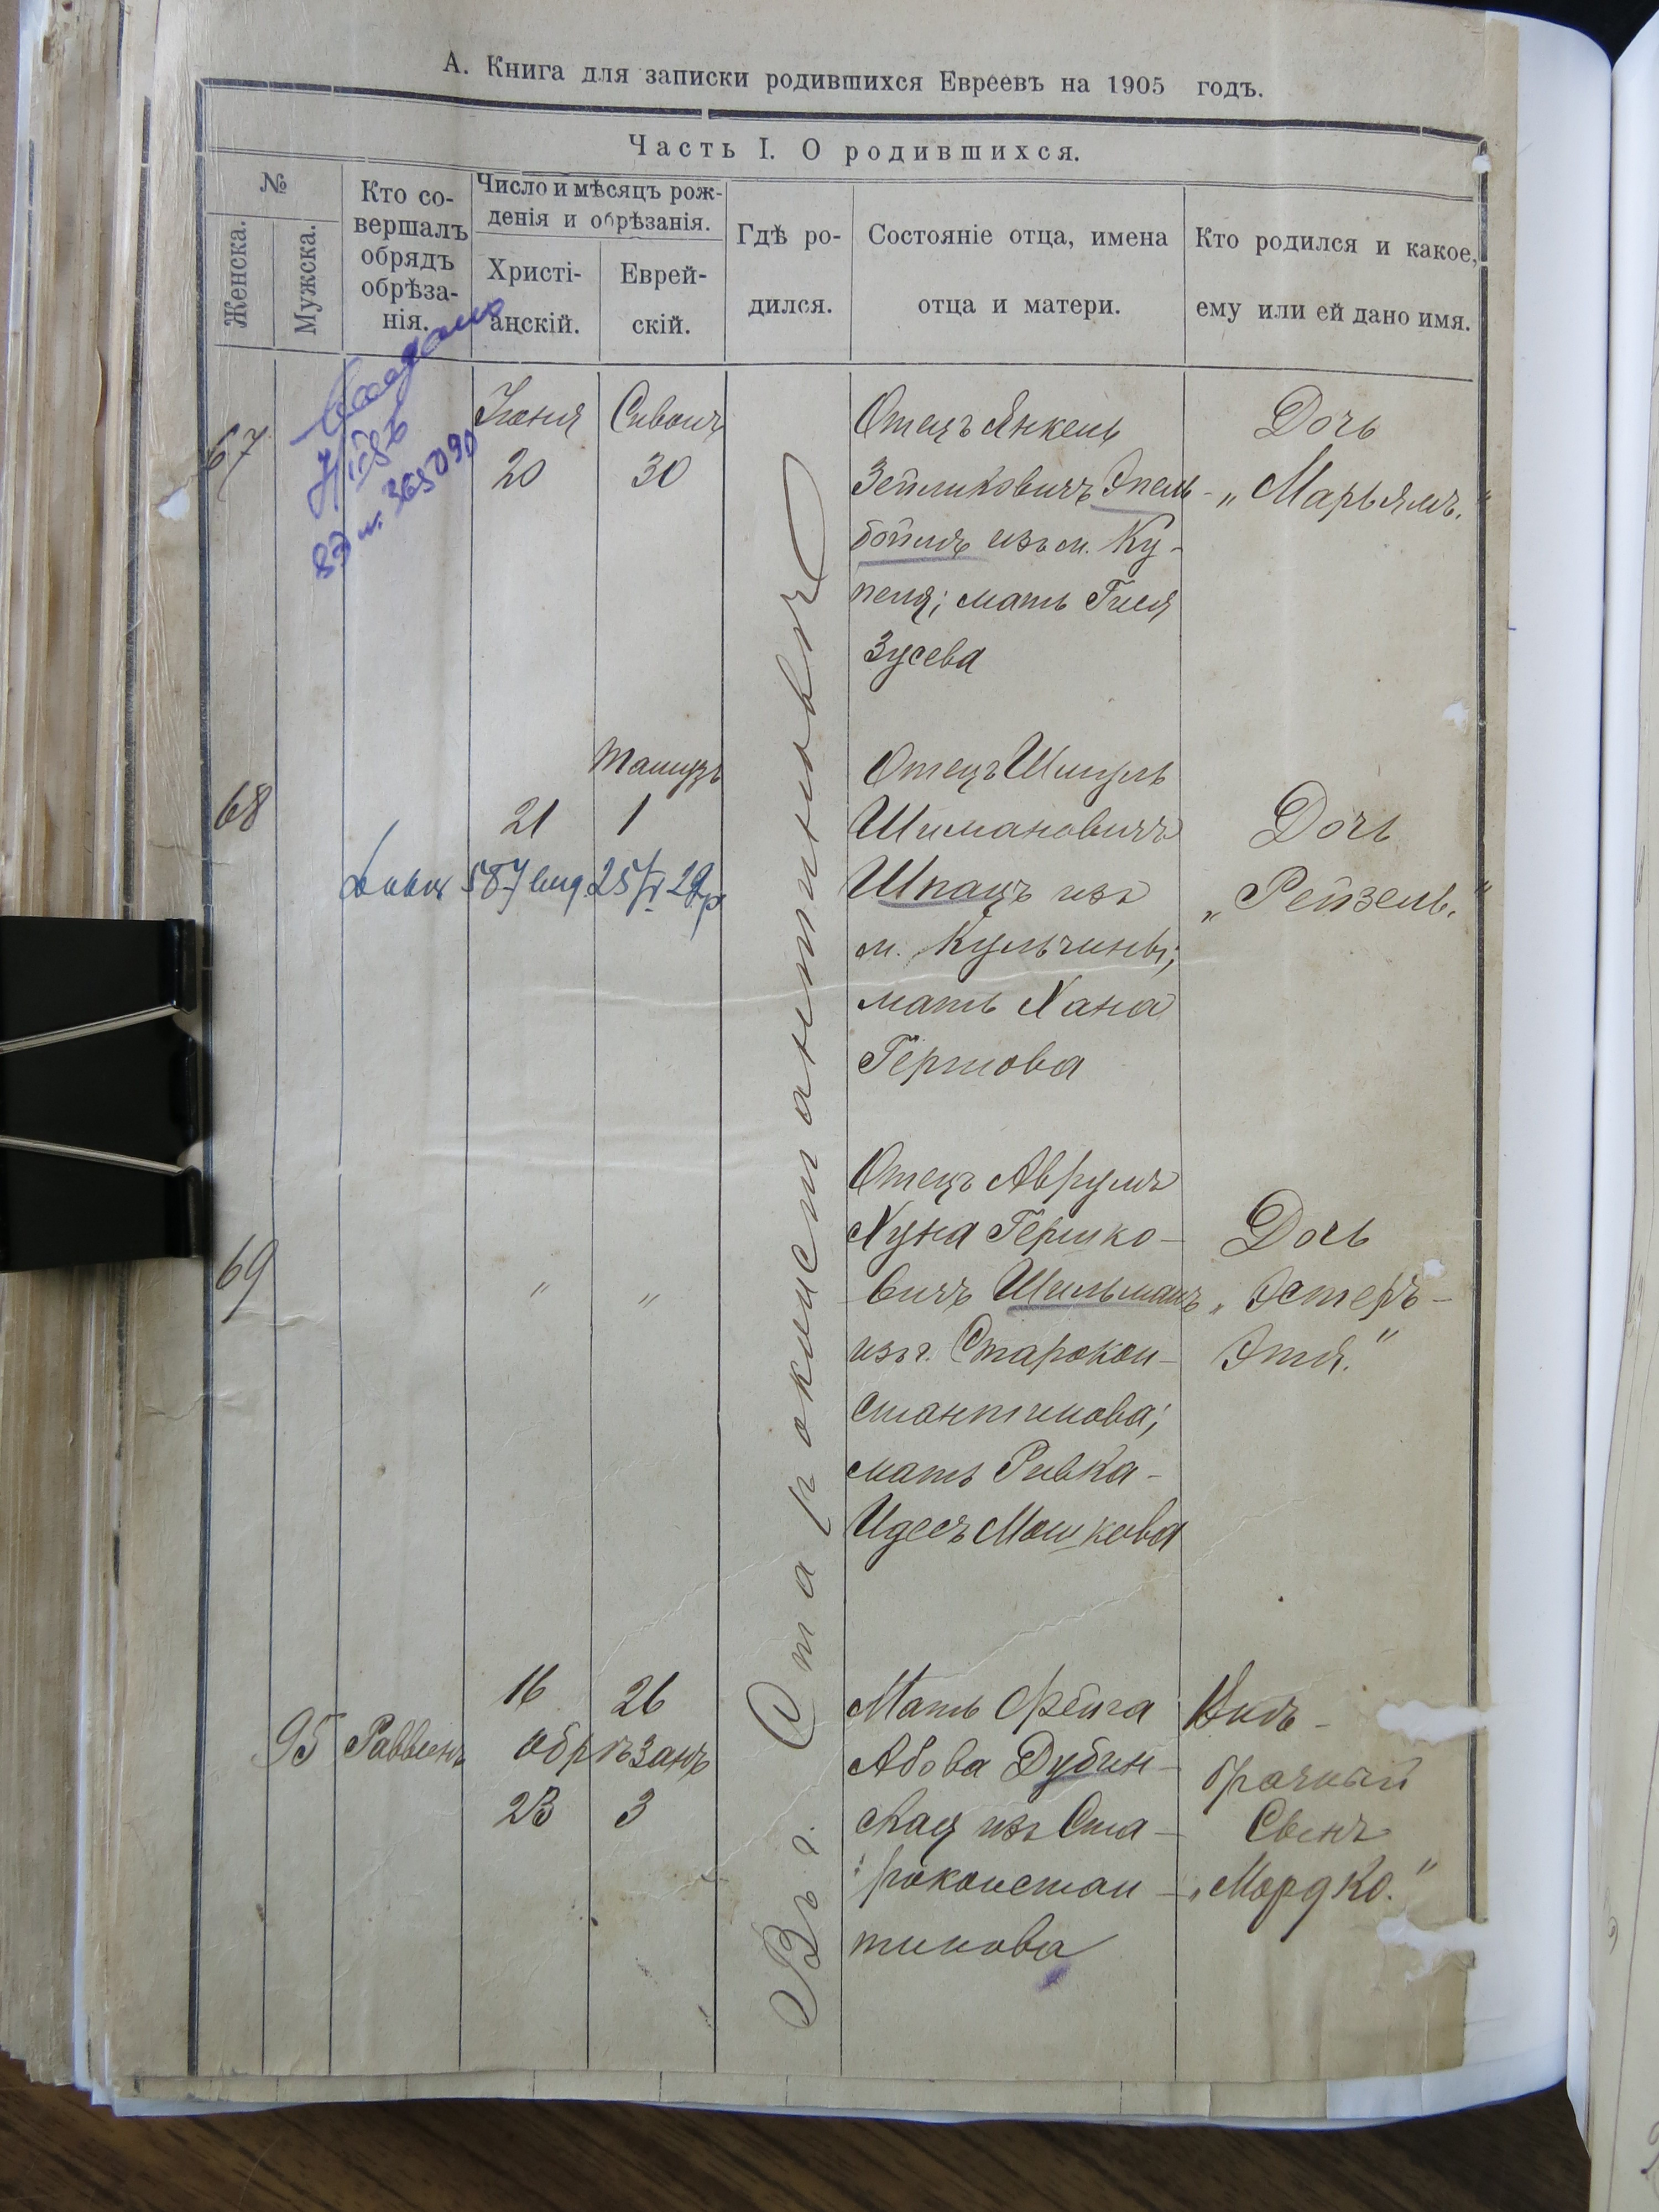 А. Книга для записки родившихся Евреевъ на 1905 годъ.
Часть I. О родившихся.
№
Женска.
Мужска.
Кто со-
вершалъ
обрядъ
обрѣза-
нія.
Число и мѣсяцъ рож-
денія и обрѣзанія.
Христі-
анскій.
Еврей-
скій.
Гдѣ ро-
дился.
Состояніе отца, имена
отца и матери.
Кто родился и какое,
ему или ей дано имя.
Въ г. Староконстантиновѣ
67
Іюня
20
Сивонъ
30
Отецъ Янкель
Зейликовичъ Эпель-
боймъ изъ м. Ку-
пеля; мать Гися
Зусева
Дочь
„Марьямъ."
68
21
Тамузъ
1
587 25/VI 29р
Отецъ Шмуль
Шимановичъ
Шпацъ изъ
м. Кульчины;
мать Хана
Гершова
Дочь
„Рейзель."
69
"
"
Отецъ Аврумъ
Хуна Гершко-
вичъ Шильманъ
изъ г. Старокон-
стантинова;
мать Ривка-
Идесъ Мошкова
Дочь
„Эстеръ-
Этя."
95
Раввинъ
16
26
обрѣзанъ
23
3
Мать Фейга
Абова Дубин-
ская изъ Ста-
роконстан-
тинова
Внѣ-
брачный
Сынъ
„Мордко."